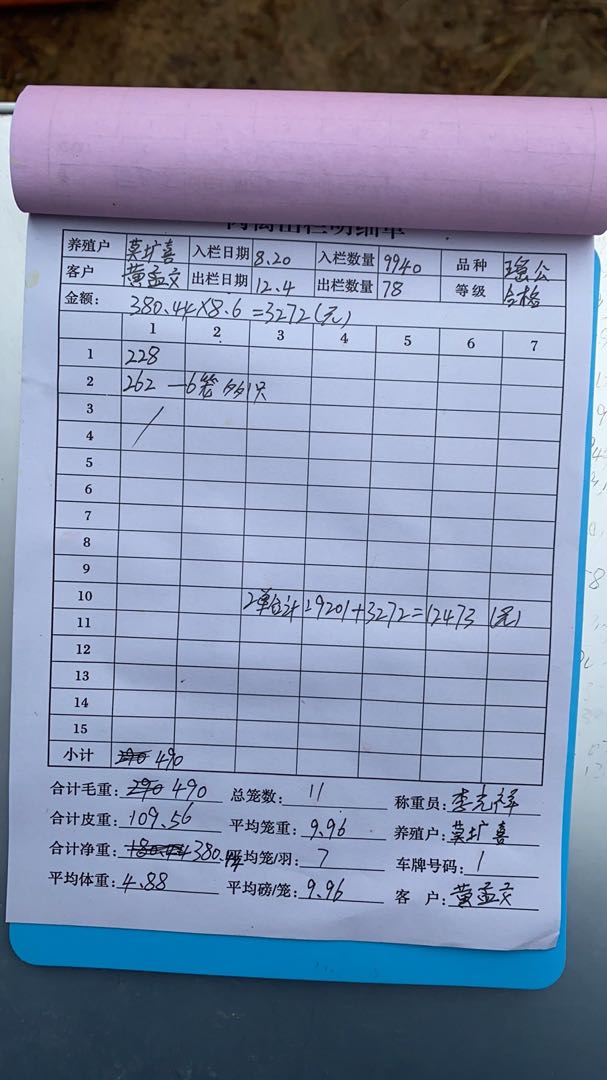 肉禽出栏明细单
养殖户 莫圹喜 入栏日期 8.20 入栏数量 9940 品种 瑶公
客户 黄孟交 出栏日期 12.4 出栏数量 78 等级 合格
金额: 380.44×8.6=3272(元)
1 2 3 4 5 6 7
1 228
2 262 —6笼多1只
3
4
5
6
7
8
9
10 2单合计:9201+3272=12473(元)
11
12
13
14
15
小计 490
合计毛重: 290 490 总笼数: 11 称重员: 李光祥
合计皮重: 109.56 平均笼重: 9.96 养殖户: 莫圹喜
合计净重: 180.44 380.44 平均笼/羽: 7 车牌号码: 1
平均体重: 4.88 平均磅/笼: 9.96 客 户: 黄孟交